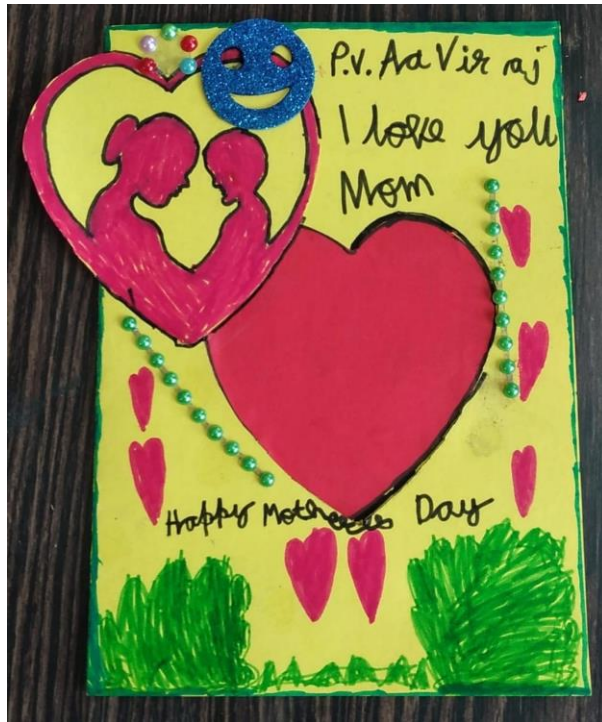 P.V. AaViraj
I love you
Mom
Happy Mothers Day